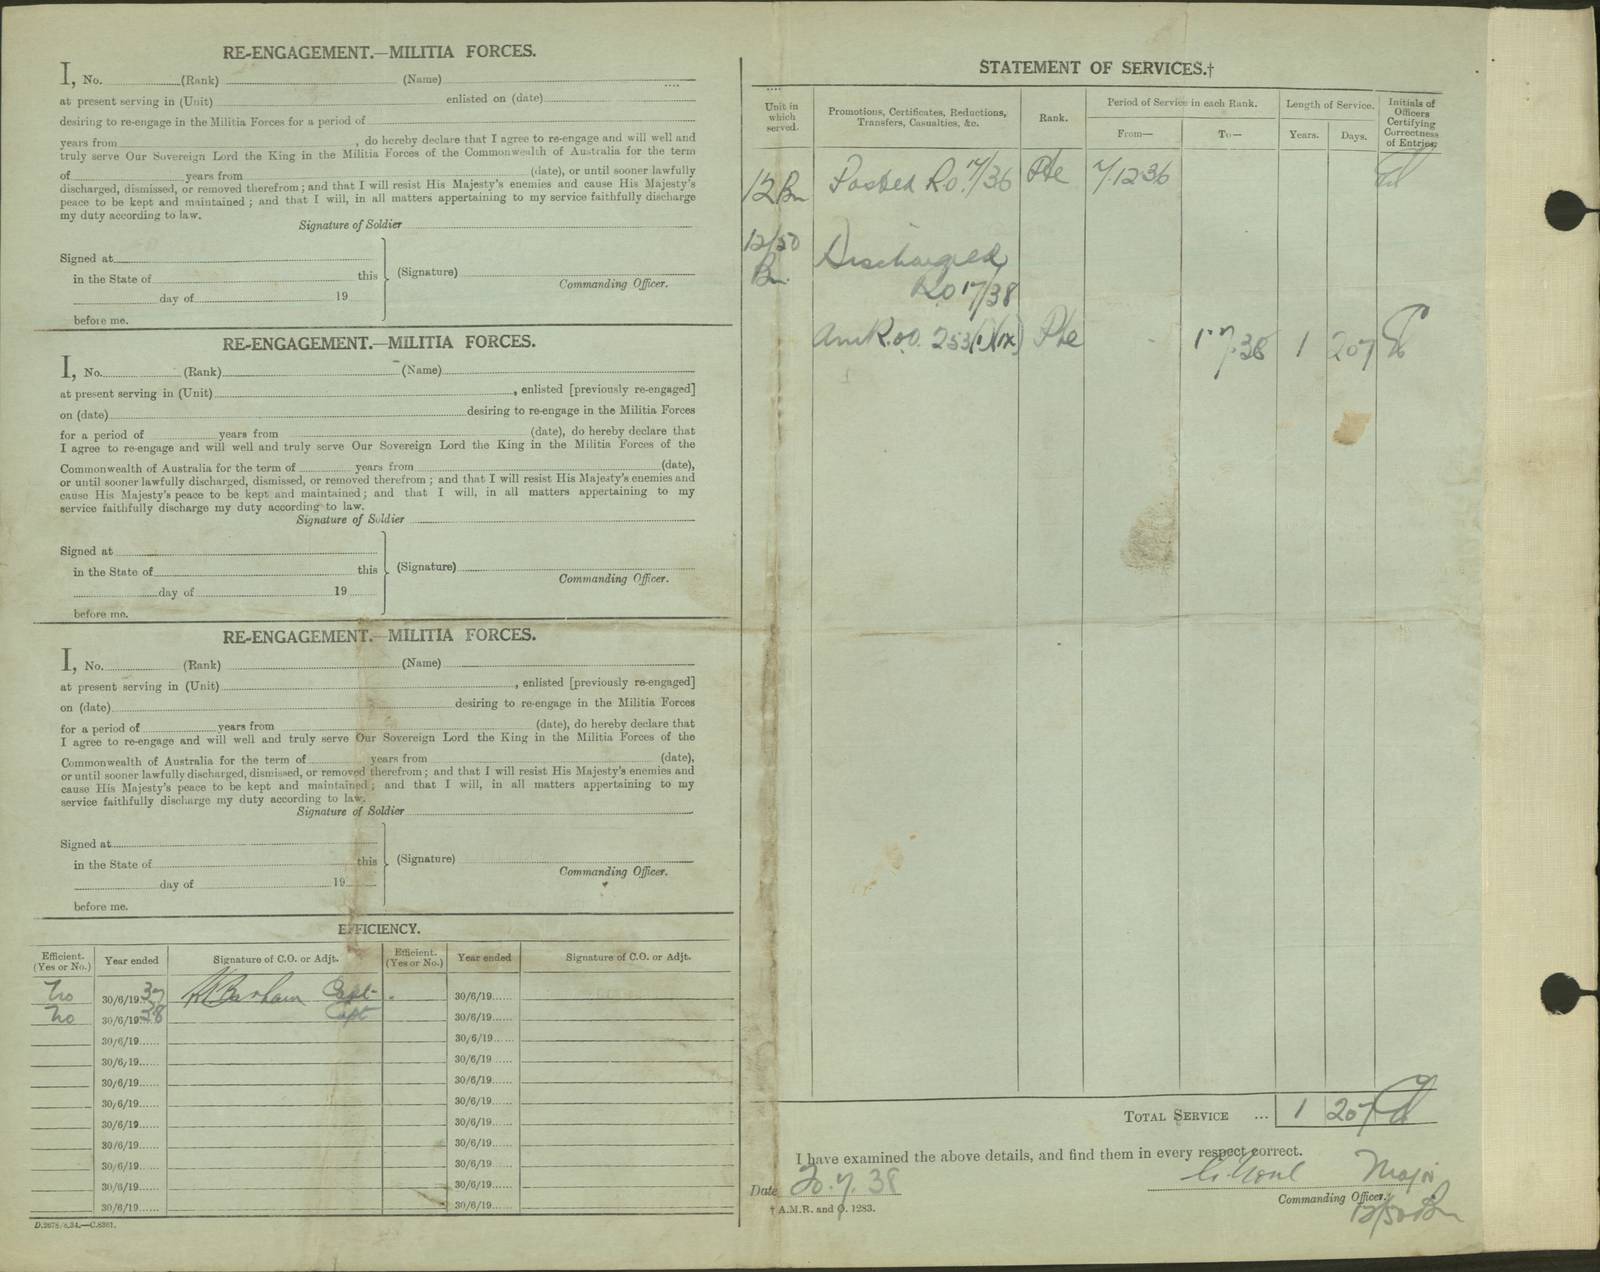 RE-ENGAGEMENT.—MILITIA FORCES.
I, No. (Rank) (Name)
at present serving in (Unit) enlisted on (date)
desiring to re-engage in the Militia Forces for a period of
years from , do hereby declare that I agree to re-engage and will well and
truly serve Our Sovereign Lord the King in the Militia Forces of the Commonwealth of Australia for the term
of years from (date), or until sooner lawfully
discharged, dismissed, or removed therefrom; and that I will resist His Majesty's enemies and cause His Majesty's
peace to be kept and maintained; and that I will, in all matters appertaining to my service faithfully discharge
my duty according to law.
Signature of Soldier
Signed at
in the State of this
day of 19
before me.
(Signature)
Commanding Officer.
RE-ENGAGEMENT.—MILITIA FORCES.
I, No. (Rank) (Name)
at present serving in (Unit) , enlisted [previously re-engaged]
on (date) desiring to re-engage in the Militia Forces
for a period of years from (date), do hereby declare that
I agree to re-engage and will well and truly serve Our Sovereign Lord the King in the Militia Forces of the
Commonwealth of Australia for the term of years from (date),
or until sooner lawfully discharged, dismissed, or removed therefrom; and that I will resist His Majesty's enemies and
cause His Majesty's peace to be kept and maintained; and that I will, in all matters appertaining to my
service faithfully discharge my duty according to law.
Signature of Soldier
Signed at
in the State of this
day of 19
before me.
(Signature)
Commanding Officer.
RE-ENGAGEMENT.—MILITIA FORCES.
I, No. (Rank) (Name)
at present serving in (Unit) , enlisted [previously re-engaged]
on (date) desiring to re-engage in the Militia Forces
for a period of years from (date), do hereby declare that
I agree to re-engage and will well and truly serve Our Sovereign Lord the King in the Militia Forces of the
Commonwealth of Australia for the term of years from (date),
or until sooner lawfully discharged, dismissed, or removed therefrom; and that I will resist His Majesty's enemies and
cause His Majesty's peace to be kept and maintained; and that I will, in all matters appertaining to my
service faithfully discharge my duty according to law.
Signature of Soldier
Signed at
in the State of this
day of 19
before me.
(Signature)
Commanding Officer.
EFFICIENCY.
Efficient. (Yes or No.) Year ended Signature of C.O. or Adjt. Efficient. (Yes or No.) Year ended Signature of C.O. or Adjt.
No 30/6/19 37 Barham Capt 30/6/19
No 30/6/19 38 Capt 30/6/19
30/6/19 30/6/19
30/6/19 30/6/19
30/6/19 30/6/19
30/6/19 30/6/19
30/6/19 30/6/19
30/6/19 30/6/19
30/6/19 30/6/19
30/6/19 30/6/19
30/6/19 30/6/19
D.2678/8.34.—C.8361.
STATEMENT OF SERVICES.†
Unit in which served.
Promotions, Certificates, Reductions, Transfers, Casualties, &c.
Rank.
Period of Service in each Rank.
From— To—
Length of Service.
Years. Days.
Initials of Officers Certifying Correctness of Entries.
12 Bn Posted R.O. 17/36 Pte 7.12.36
12/50 Bn. Discharged
R.O 17/38
AMR.&O. 253(1)(ix) Pte 1.7.38 1 207
TOTAL SERVICE ... 1 207
I have examined the above details, and find them in every respect correct.
Date 20.7.38
Major
Commanding Officer.
12/50 Bn
† A.M.R. and O. 1283.